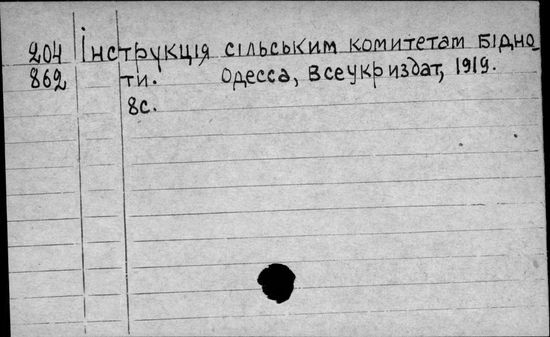 204 Інструкція сільським комитетам бідно-
862 ти. Одесса, Всеукриздат, 1919.
8с.